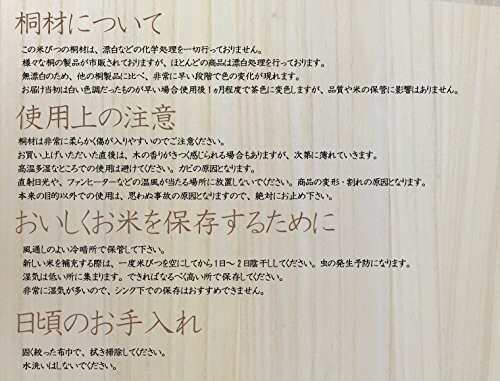 桐材について
この米びつの桐材は、漂白などの化学処理を一切行っておりません。
様々な桐の製品が市販されておりますが、ほとんどの商品は漂白処理を行っております。
無漂白のため、他の桐製品に比べ、非常に早い段階で色の変化が現れます。
お届け当初は白い色調だったものが早い場合使用後1ヵ月程度で茶色に変色しますが、品質や米の保管に影響はありません。
使用上の注意
桐材は非常に柔らかく傷が入りやすいのでご注意ください。
お買い上げいただいた直後は、木の香りがきつく感じられる場合もありますが、次第に薄れていきます。
高温多湿なところでの使用は避けてください。カビの原因となります。
直射日光や、ファンヒーターなどの温風が当たる場所に放置しないでください。商品の変形・割れの原因となります。
本来の目的以外での使用は、思わぬ事故の原因となりますので、絶対にお止め下さい。
おいしくお米を保存するために
風通しのよい冷暗所で保管して下さい。
新しい米を補充する際は、一度米びつを空にしてから1日～2日陰干ししてください。虫の発生予防になります。
湿気は低い所に集まります。できればなるべく高い所で保存してください。
非常に湿気が多いので、シンク下での保存はおすすめできません。
日頃のお手入れ
固く絞った布巾で、拭き掃除してください。
水洗いはしないでください。